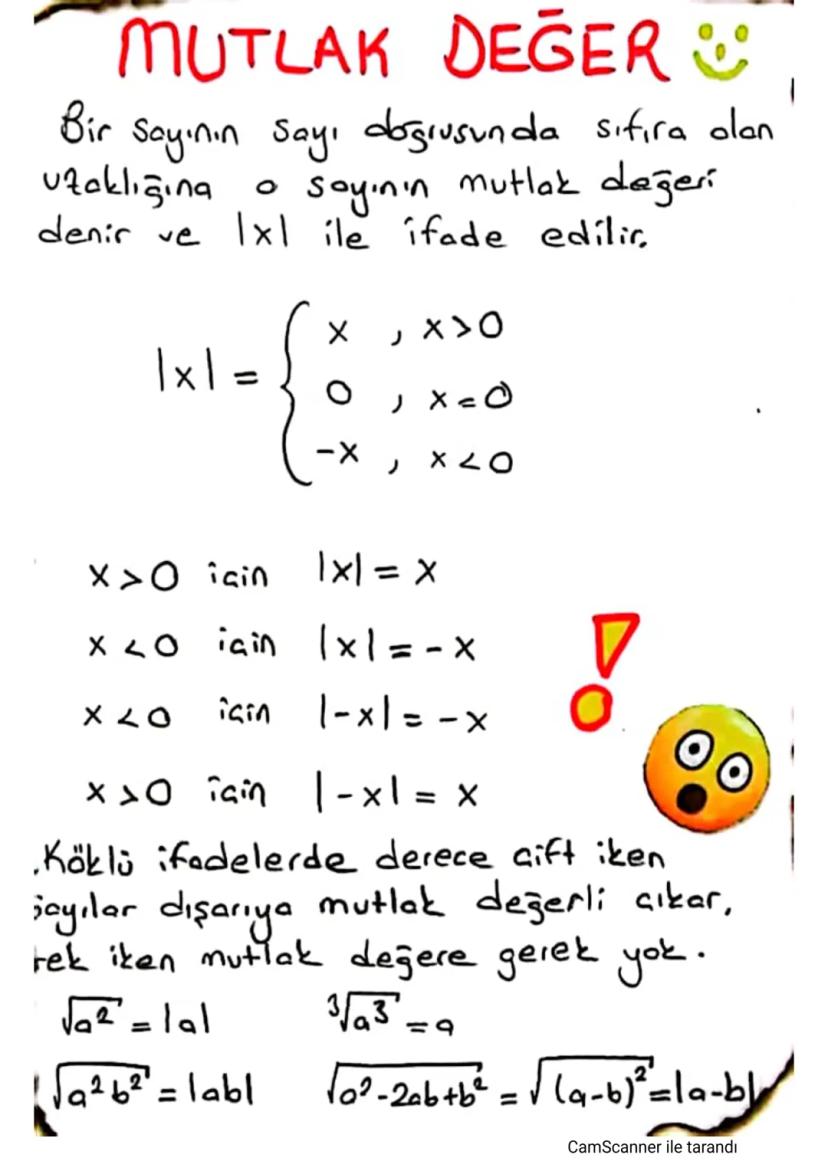 MUTLAK DEĞER
Bir sayının sayı doğrusunda sıfıra olan
uzaklığına o sayının mutlak değeri
denir ve |x| ile ifade edilir.
|x| = { x , x>0
0 , x=0
-x , x<0
x>0 için |x| = x
x<0 için |x| = -x
x<0 için |-x| = -x
x>0 için |-x| = x
!
.Köklü ifadelerde derece çift iken
sayılar dışarıya mutlak değerli çıkar,
tek iken mutlak değere gerek yok.
√a² = |a| ³√a³ = a
√a²b² = |ab| √a²-2ab+b² = √(a-b)² = |a-b|
CamScanner ile tarandı